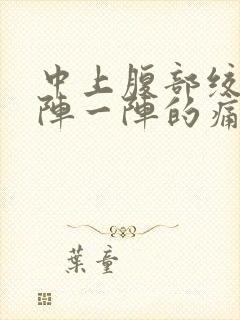 中上腹部绞
陣一陣的痛
葉童